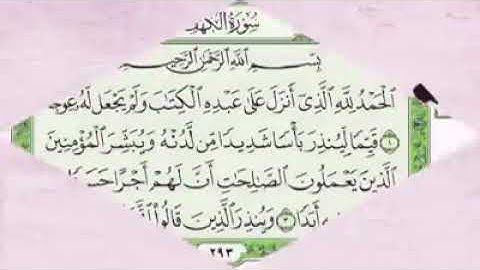 سُورَةُ الْكَهْفِ
بِسْمِ اللَّهِ الرَّحْمَٰنِ الرَّحِيمِ
الْحَمْدُ لِلَّهِ الَّذِي أَنزَلَ عَلَىٰ عَبْدِهِ الْكِتَٰبَ وَلَمْ يَجْعَل لَّهُ عِوَجَا
١ قَيِّمًا لِّيُنذِرَ بَأْسًا شَدِيدًا مِّن لَّدُنْهُ وَيُبَشِّرَ الْمُؤْمِنِينَ
الَّذِينَ يَعْمَلُونَ الصَّٰلِحَٰتِ أَنَّ لَهُمْ أَجْرًا حَسَنًا
أَبَدًا ٣ وَيُنذِرَ الَّذِينَ قَالُوا
٢٩٣